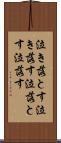 泣き落とす泣
き落す泣落と
す泣落す